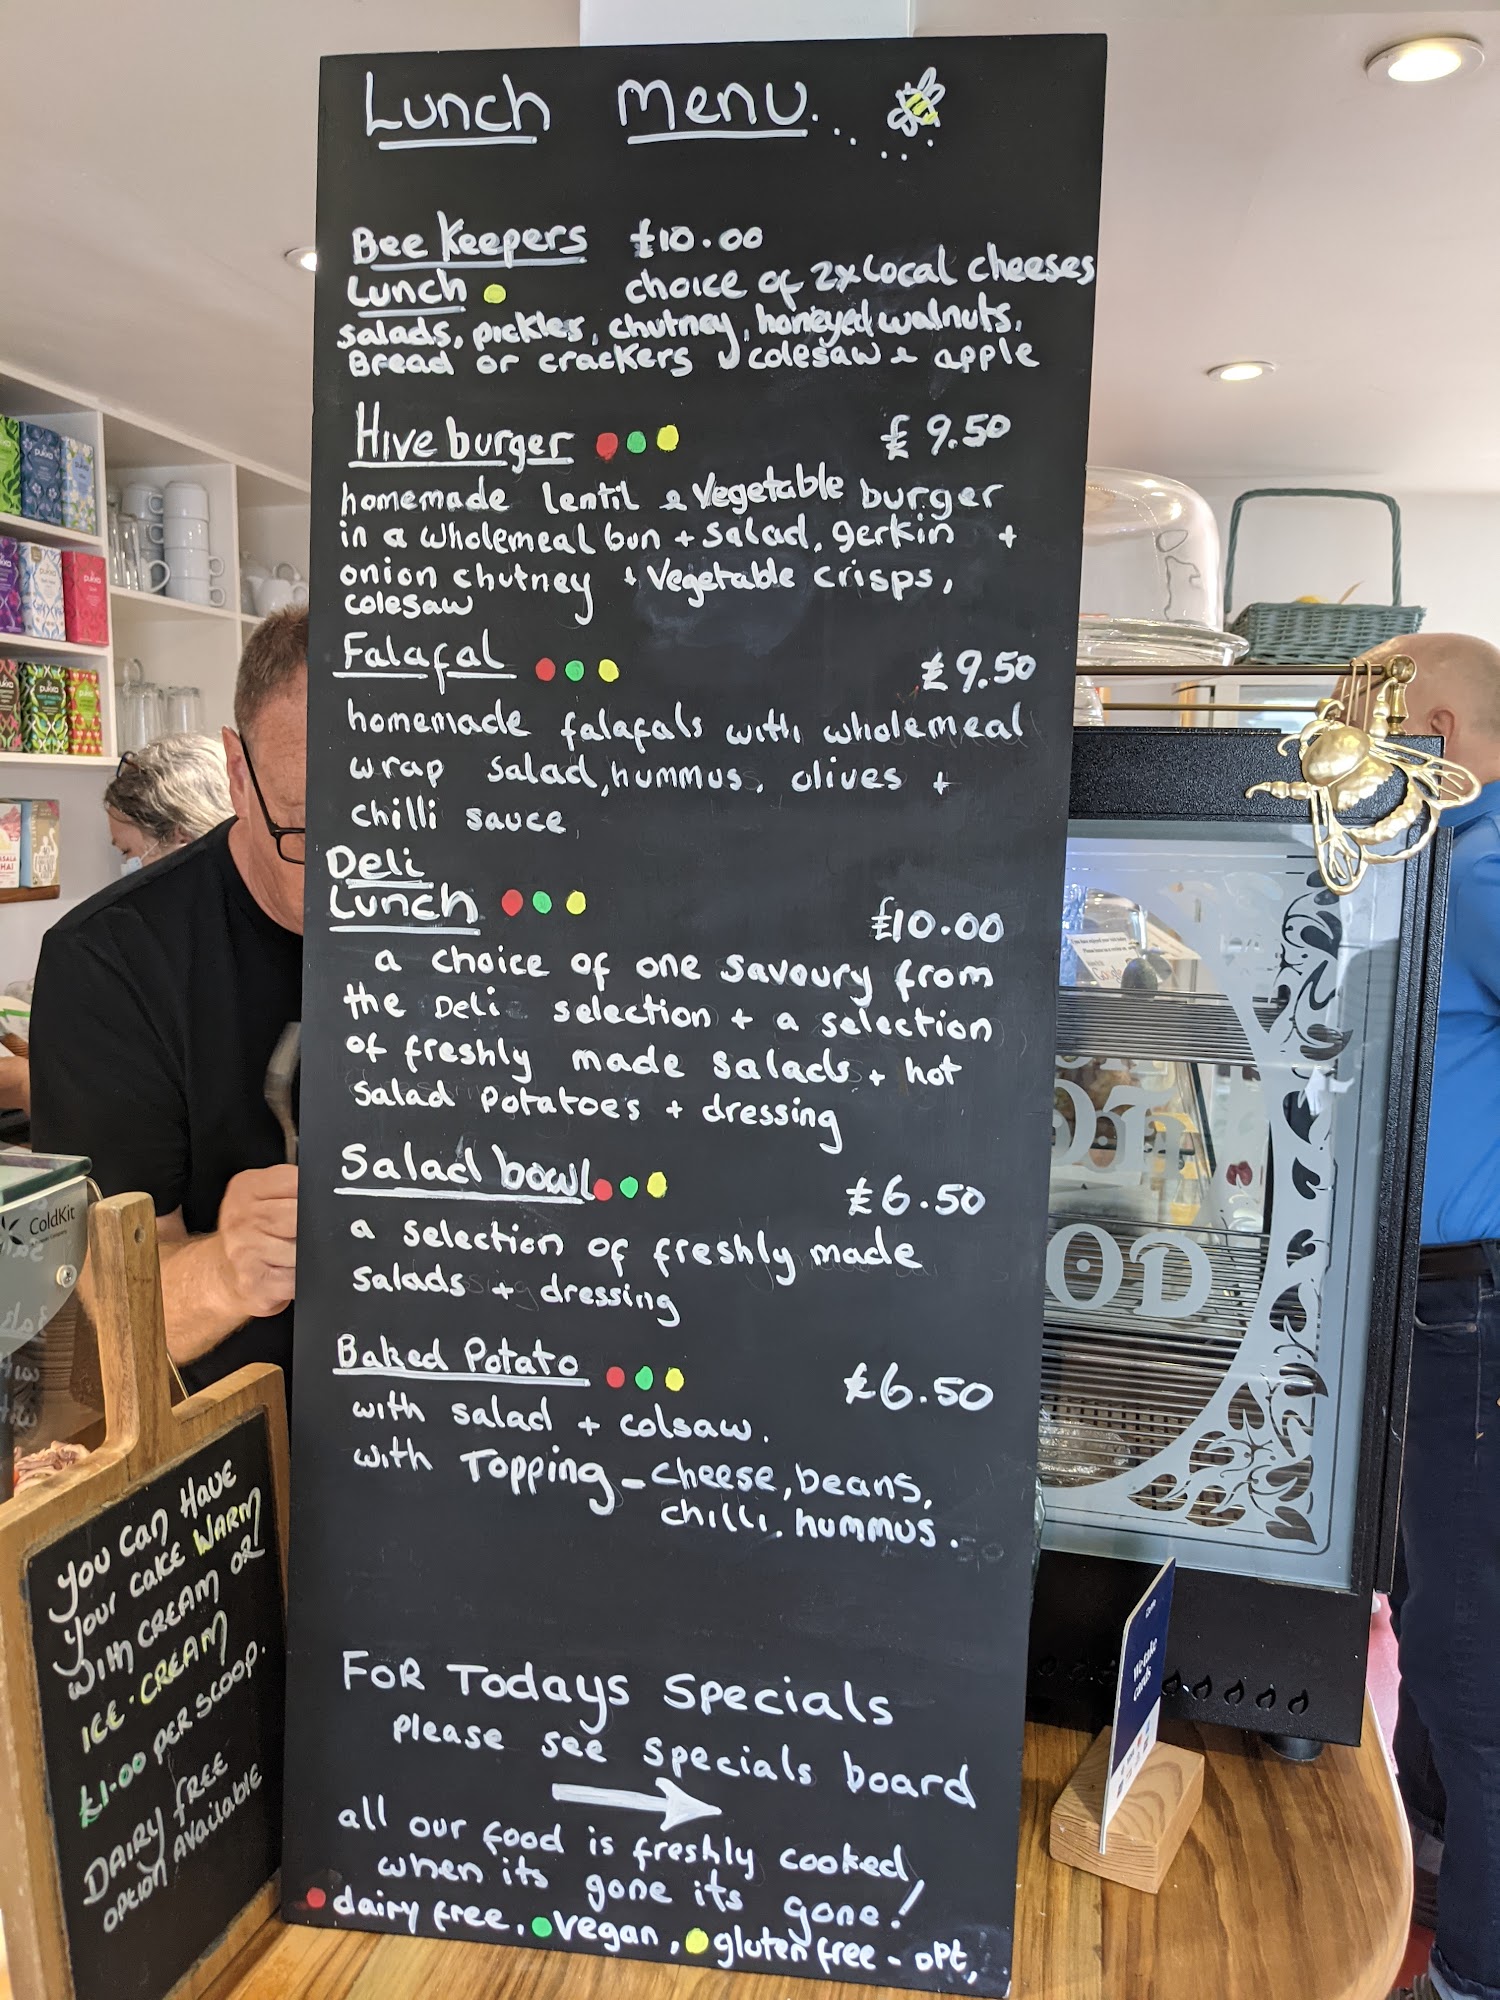 Lunch Menu.
Bee Keepers £10.00
Lunch choice of 2x Local cheeses
salads, pickles, chutney, honeyed walnuts,
Bread or crackers & colesaw & apple
Hive burger £9.50
homemade lentil & Vegetable burger
in a wholemeal bun + salad, gerkin +
onion chutney + Vegetable crisps,
colesaw
Falafal £9.50
homemade falafals with wholemeal
wrap salad, hummus, olives +
chilli sauce
Deli
Lunch £10.00
a choice of one savoury from
the Deli selection + a selection
of freshly made salads + hot
salad potatoes + dressing
Salad bowl £6.50
a selection of freshly made
salads + dressing
Baked Potato £6.50
with salad + colsaw.
with Topping - cheese, beans,
chilli, hummus.
FOR Todays Specials
please see specials board
all our food is freshly cooked,
when its gone its gone!
dairy free, vegan, gluten free - opt,
YOU CAN HAVE
YOUR CAKE WARM
WITH CREAM OR
ICE-CREAM
£1.00 PER SCOOP.
DAIRY FREE
OPTION AVAILABLE
ColdKit
pukka
pukka
pukka
pukka
pukka